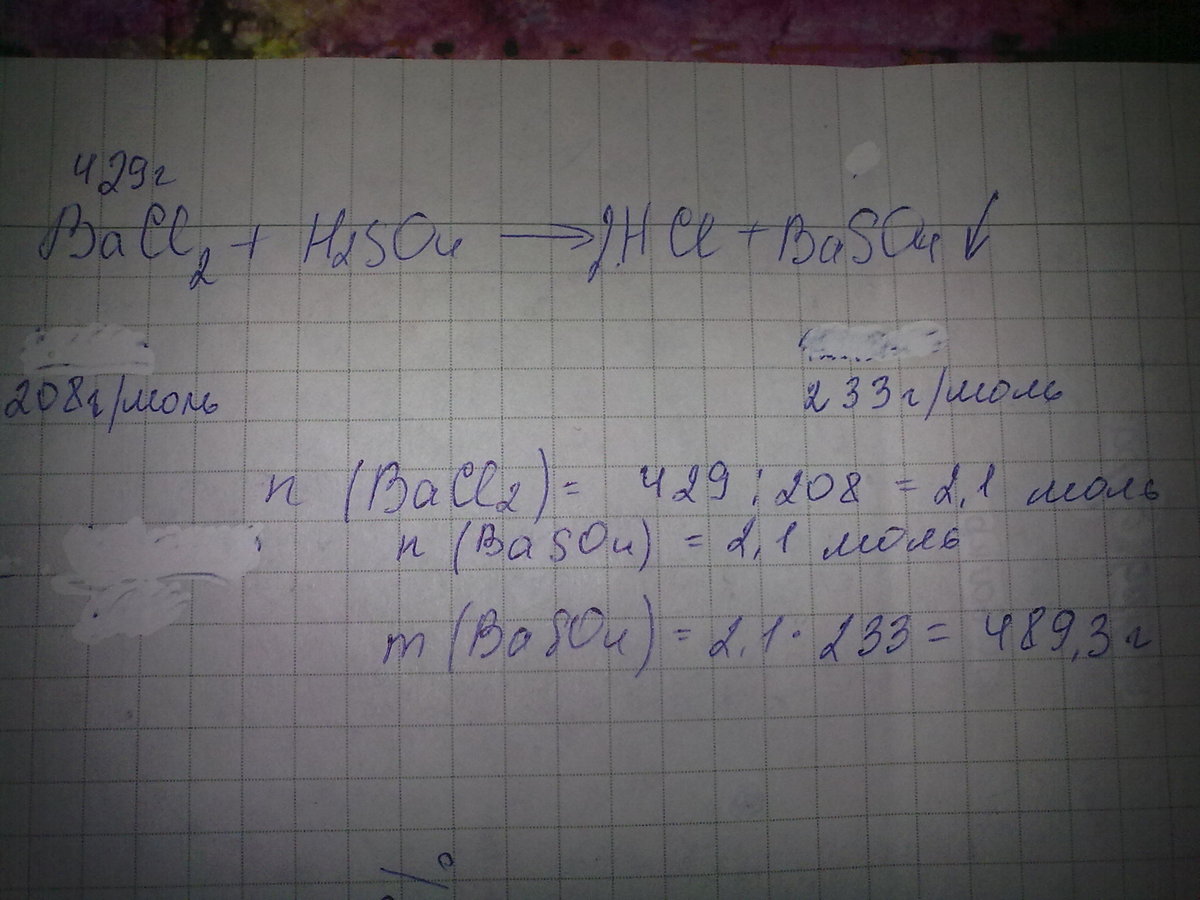 429г
BaCl2 + H2SO4 → 2HCl + BaSO4 ↓
208г/моль 233г/моль
n (BaCl2) = 429 : 208 = 2,1 моль
n (BaSO4) = 2,1 моль
m (BaSO4) = 2,1 · 233 = 489,3 г
%